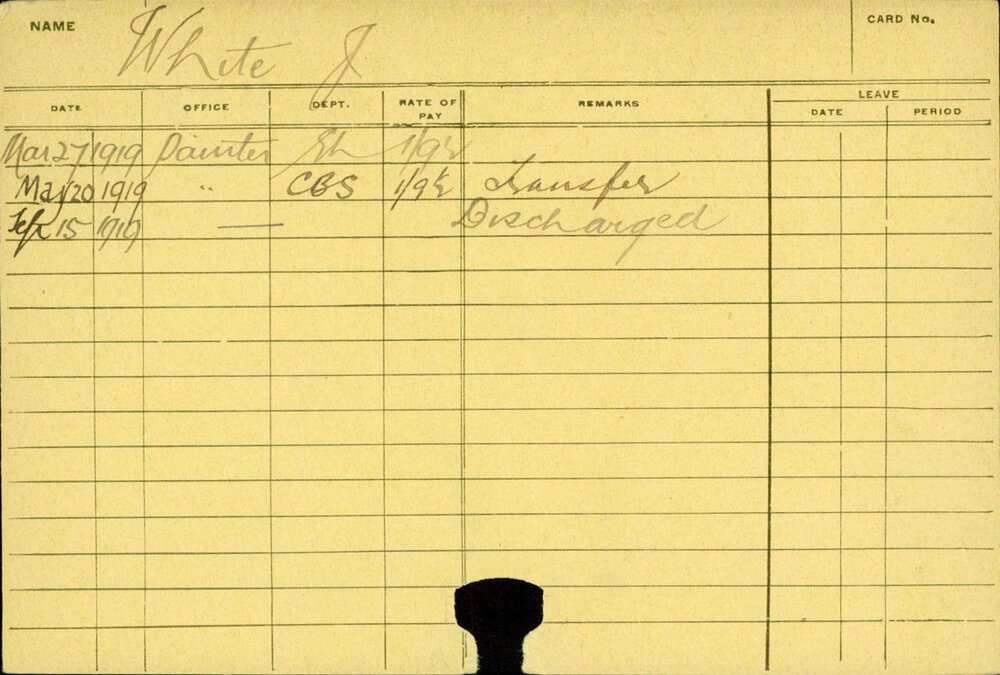 NAME White J CARD No.
LEAVE
DATE OFFICE DEPT. RATE OF PAY REMARKS DATE PERIOD
Mar 27 1919 Painter 1/9½
May 20 1919 " CBS 1/9½ Transfer
15 1919 — Discharged